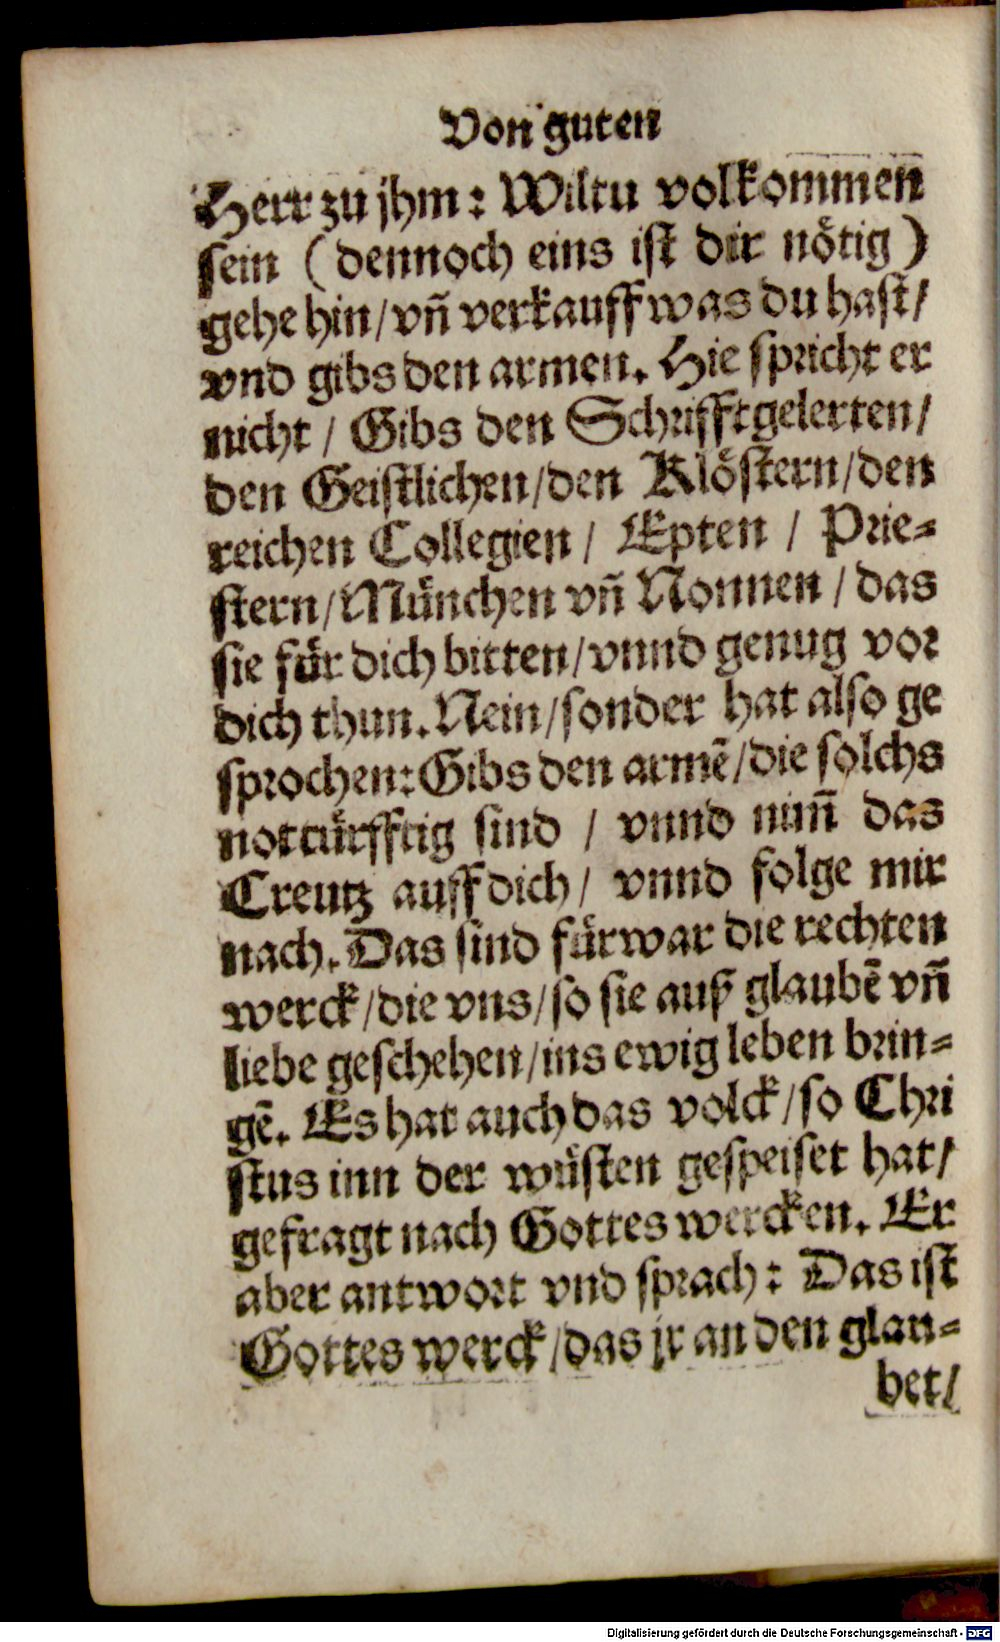 Von guten
Herr zu jhm: Wiltu volkommen
sein (dennoch eins ist dir nötig)
gehe hin/vñ verkauff was du hast/
vnd gibs den armen. Hie spricht er
nicht / Gibs den Schrifftgelerten/
den Geistlichen/den Klöstern/den
reichen Collegien / Epten / Prie-
stern/München vñ Nonnen / das
sie für dich bitten/vnnd genug vor
dich thun. Nein/sonder hat also ge
sprochen: Gibs den armē/die solchs
nottürfftig sind / vnnd nim̄ das
Creutz auff dich/ vnnd folge mir
nach. Das sind fürwar die rechten
werck/die vns/so sie auß glaubē vñ
liebe geschehen/ins ewig leben brin-
gē. Es hat auch das volck/so Chri
stus inn der wüsten gespeiset hat/
gefragt nach Gottes wercken. Er
aber antwort vnd sprach: Das ist
Gottes werck/das jr an den glau-
bet/
Digitalisierung gefördert durch die Deutsche Forschungsgemeinschaft - DFG